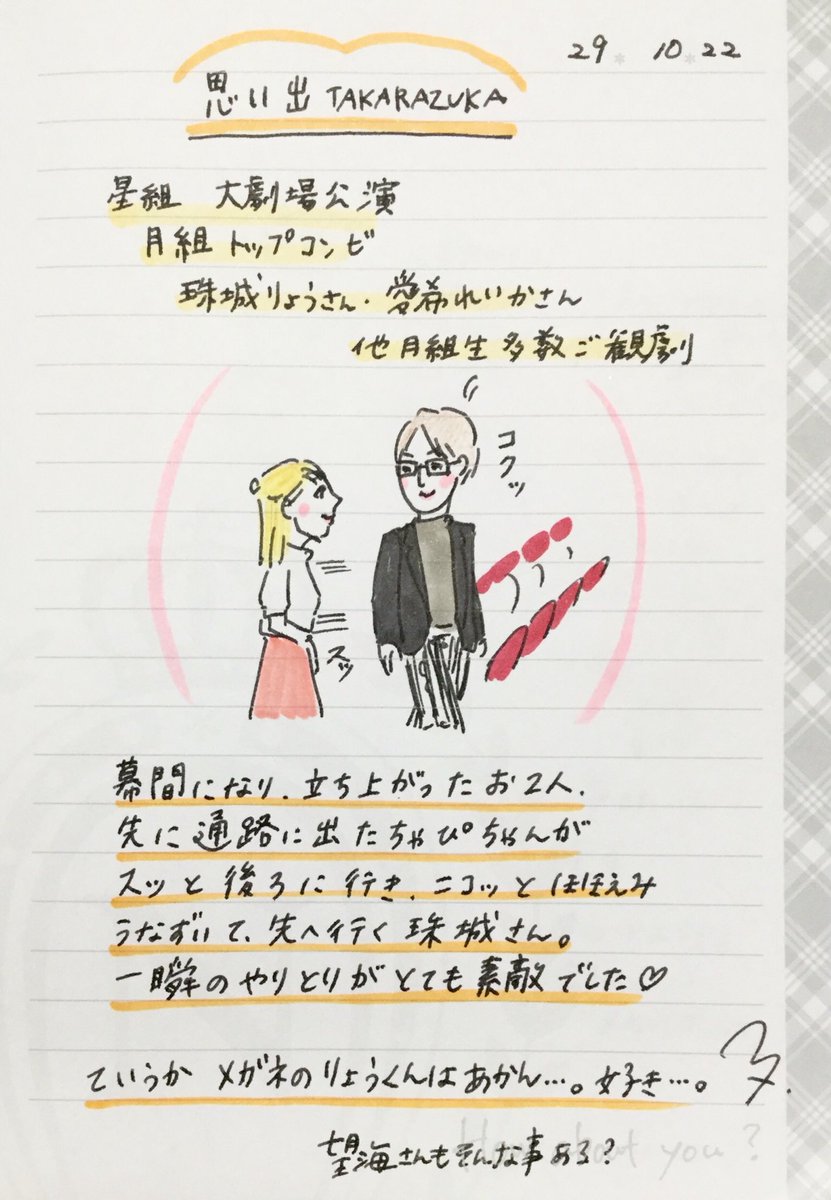 29 10 22
思い出 TAKARAZUKA
星組 大劇場公演
月組 トップコンビ
珠城りょうさん・愛希れいかさん
他月組生多数ご観劇
コクッ
スッ
幕間になり、立ち上がったお2人。
先に通路に出たちゃぴちゃんが
スッと後ろに行き、ニコッとほほえみ
うなずいて、先へ行く珠城さん。
一瞬のやりとりがとても素敵でした♡
ていうか メガネのりょうくんはあかん…。好き…。
望海さんもそんな事ある?
How about you?